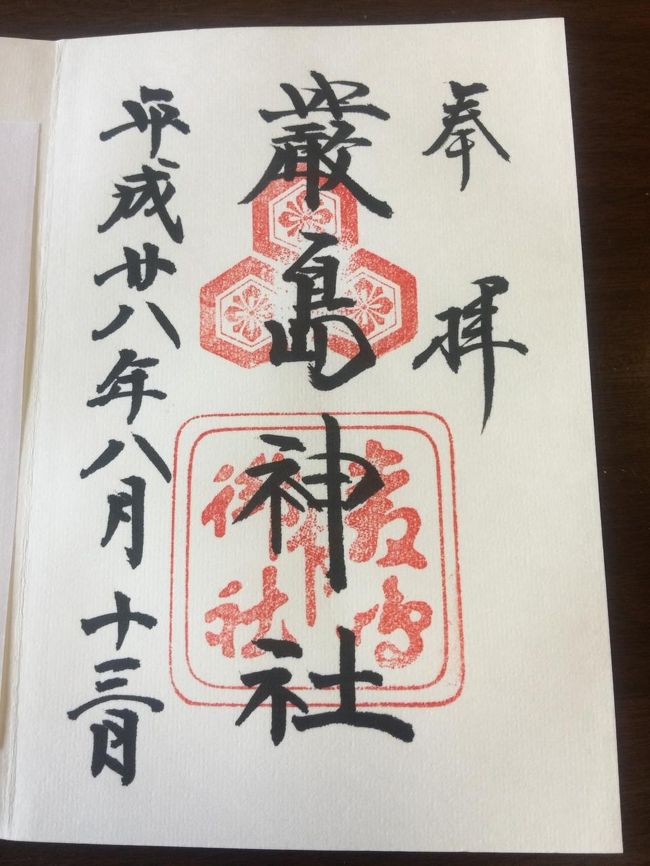 奉拝
嚴島神社
平成廿八年八月十三日